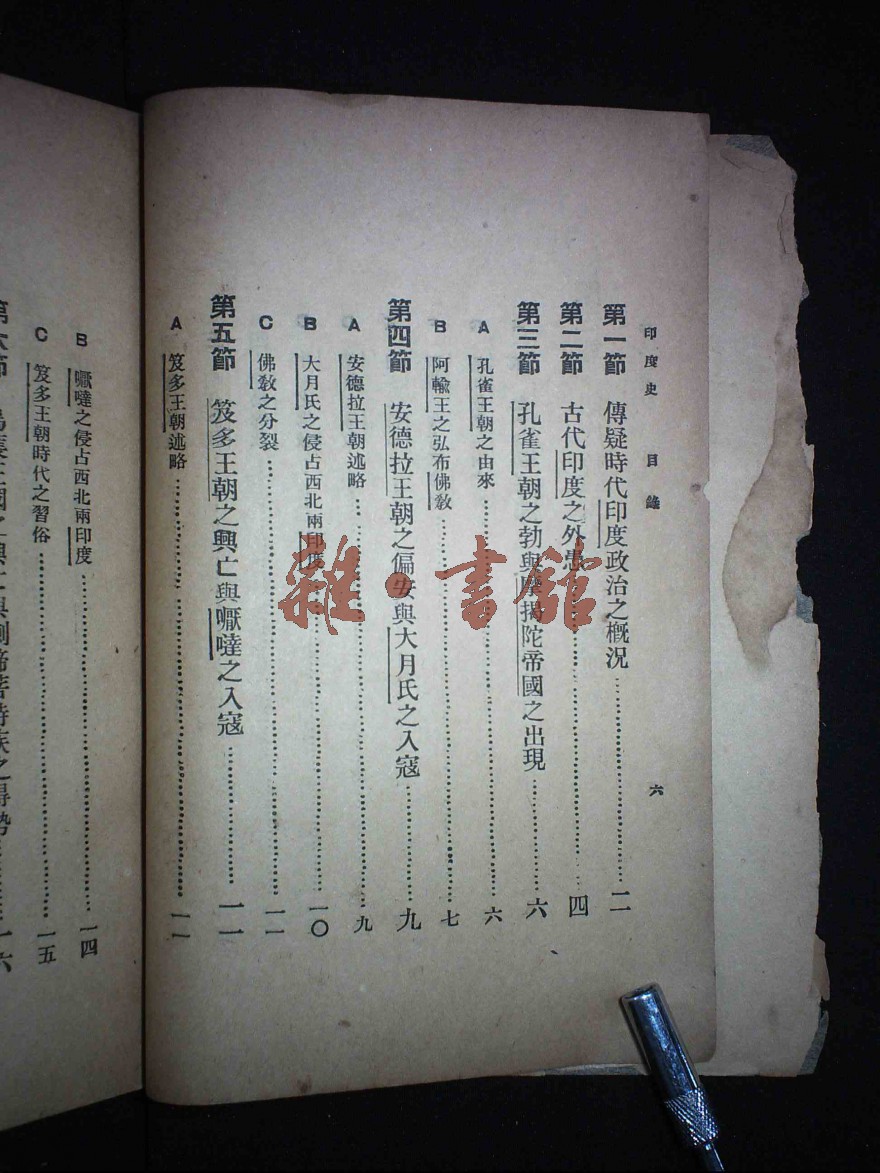 印度史 目錄 六
第一節 傳疑時代印度政治之概況……二
第二節 古代印度之外患……四
第三節 孔雀王朝之勃與摩揭陀帝國之出現……六
A 孔雀王朝之由來……六
B 阿輸王之弘布佛教……七
第四節 安德拉王朝之偏安與大月氏之入寇……九
A 安德拉王朝述略……九
B 大月氏之侵占西北兩印度……一〇
C 佛教之分裂……一一
第五節 笈多王朝之興亡與嚈噠之入寇……一一
A 笈多王朝述略……一二
B 嚈噠之侵占西北兩印度……一四
C 笈多王朝時代之習俗……一五
第六節……一六
雜·書館